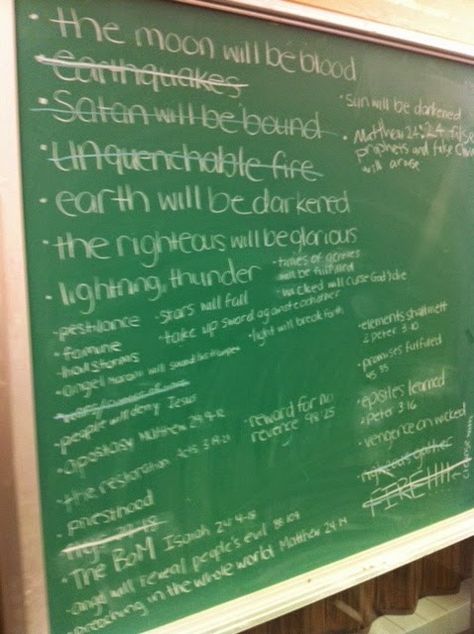 • the moon will be blood
earthquakes
• Satan will be bound
• unquenchable fire
• earth will be darkened
• the righteous will be glorious
• lightning, thunder
• pestilance
• famine
• hail storms
• angel Moroni will sound the trumpet
• people will deny Jesus
• apostasy Matthew 24:9-12
• the restoration Acts 3:19-21
• priesthood
• The BoM Isaiah 24:4-18
• angel will reveal people's evil 88:109
• preaching in the whole world Matthew 24:14
• times of gentiles
will be fulfilled
• wicked will curse God & die
• stars will fall
• take up sword against eachother
• light will break forth
• reward for no
revenge 98:25
• sun will be darkened
• Matthew 24:24 false
prophets and fake
will arise
• elements shall melt
2 peter 3:10
• promises fulfilled
45:35
• epistles learned
2 peter 3:16
• vengence on wicked
• righteous gather
FIRE!!!!